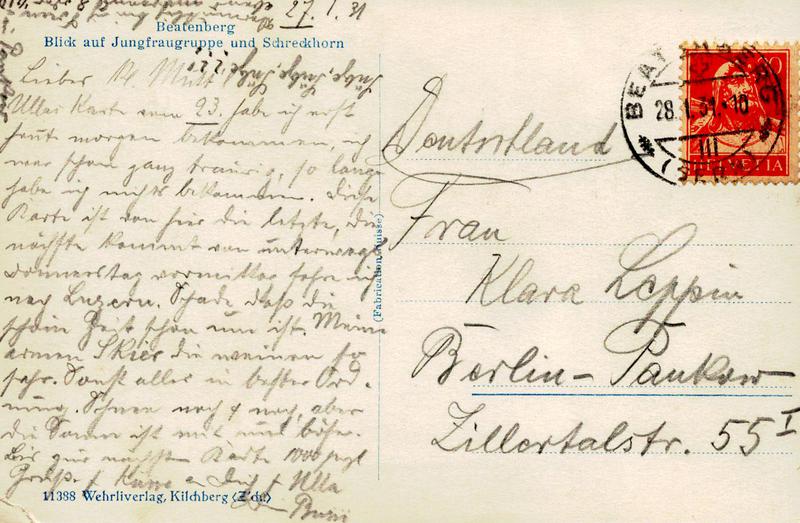 27.1.31
Beatenberg
Blick auf Jungfraugruppe und Schreckhorn
Lieber
Ullas Karte vom 23. habe ich erst
heute morgen bekommen, ich
war schon ganz traurig, so lange
habe ich nichts bekommen. Diese
Karte ist von hier die letzte, die
nächste kommt von unterwegs
Donnerstag vormittag fahre ich
nach Luzern. Schade dass die
schöne Zeit schon um ist. Meine
armen Skier die weinen so
sehr. Sonst alles in bester Ord-
nung. Schnee noch noch, aber
die Sonne ist mit und
Bis zur nächsten Karte 1000
Grüße & Küsse an Dich & Ulla
11388 Wehrliverlag, Kilchberg (Zch)
(Fabrication Suisse)
BEATENBERG
28.1.31.-10
III
(BERN)
HELVETIA
Deutschland
Frau
Klara Leppin
Berlin-Pankow
Zillertalstr. 55 I